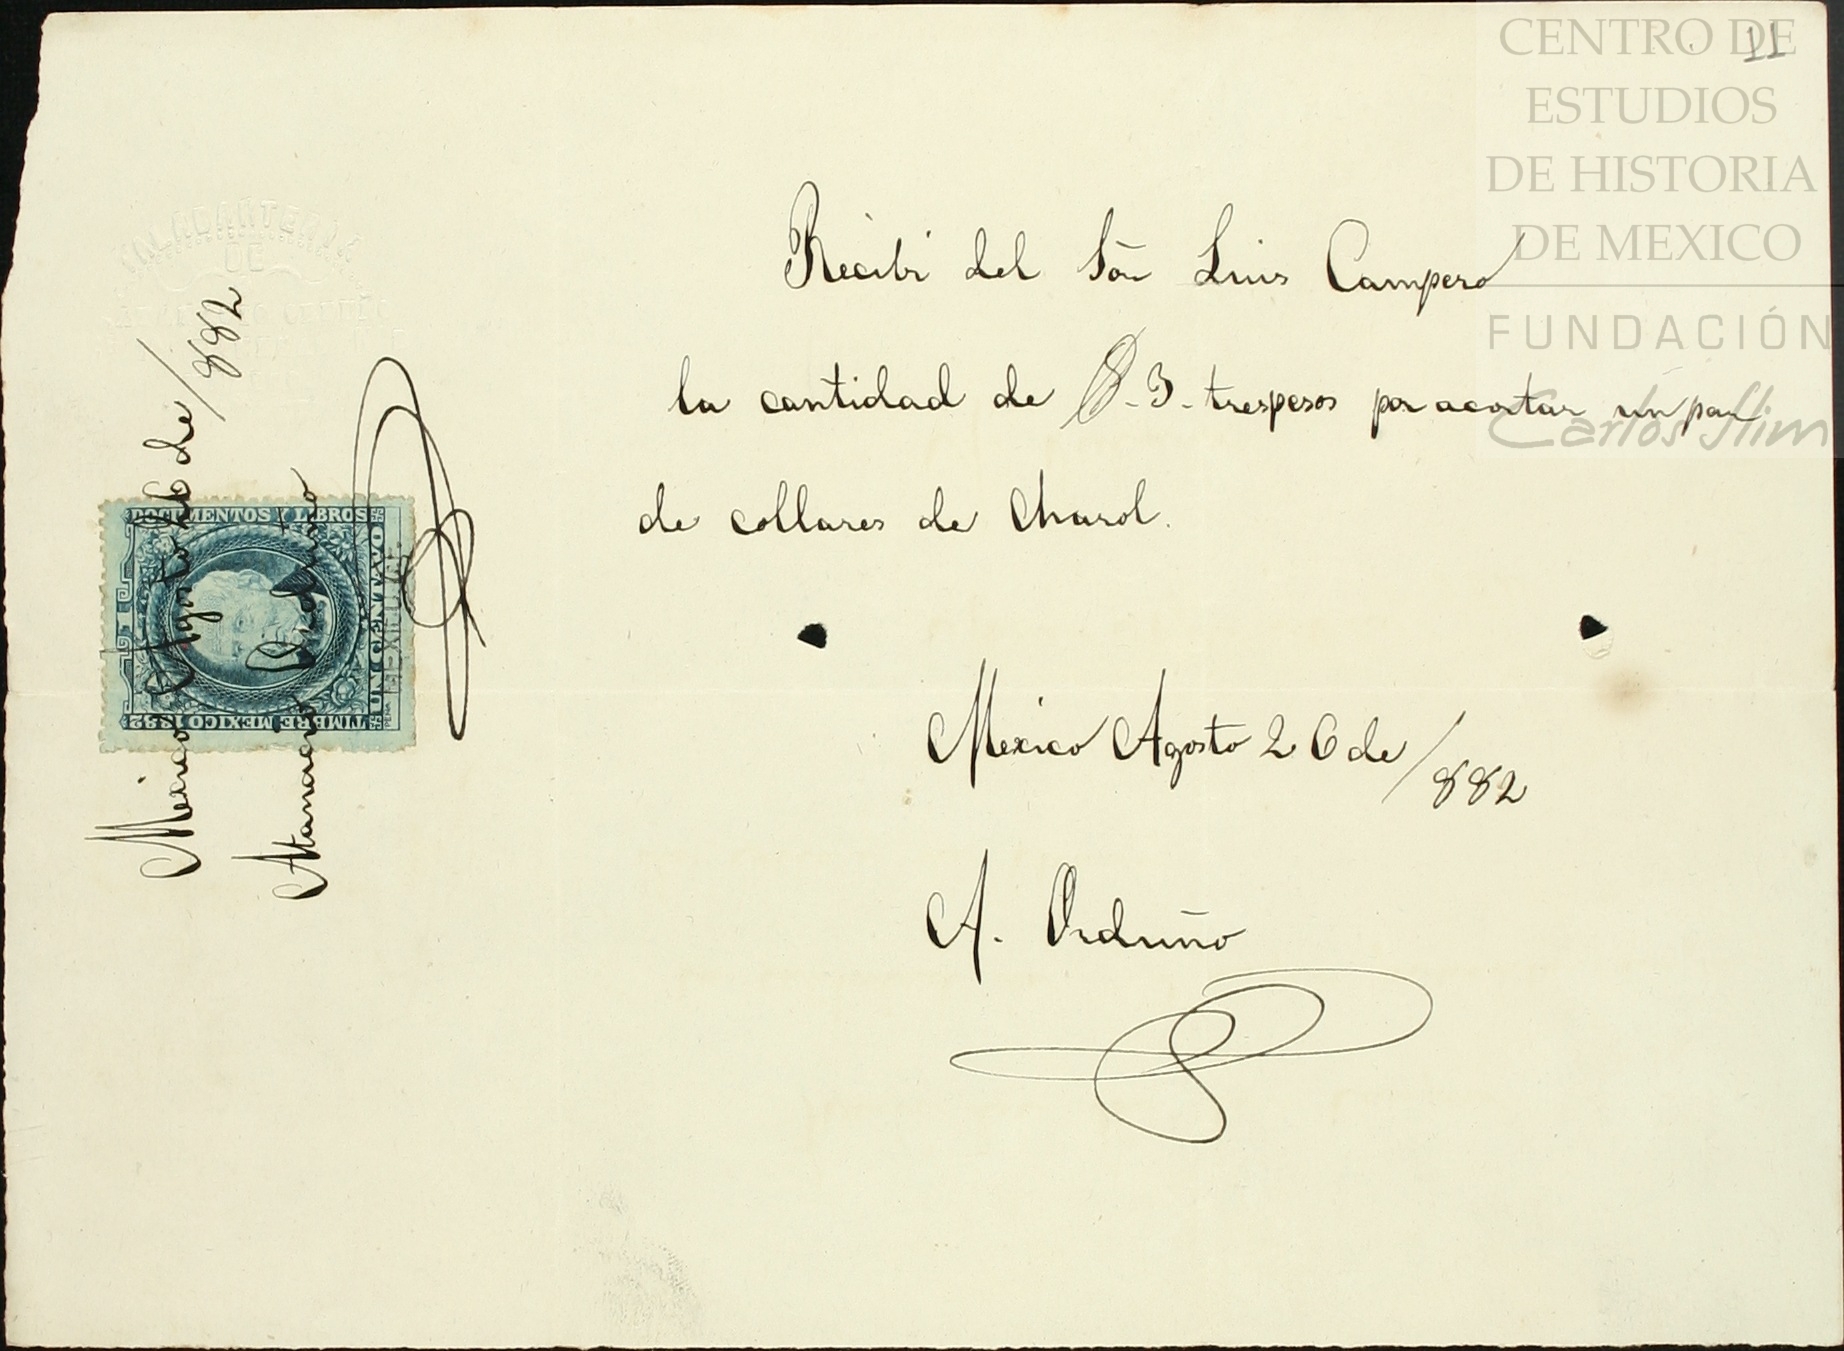 11
CENTRO DE
ESTUDIOS
DE HISTORIA
DE MEXICO
FUNDACIÓN
Carlos Slim
TALABARTERIA
DE
Recibi del Sõr Luis Campero
la cantidad de $.3. tres pesos por acortar un par
de collares de charol.
Mexico Agosto 26 de /882
A. Orduño
Mexico Agosto 26 de /882
Atanacio Orduño
DOCUMENTOS Y LIBROS
UN CENTAVO
TIMBRE MEXICO 1882